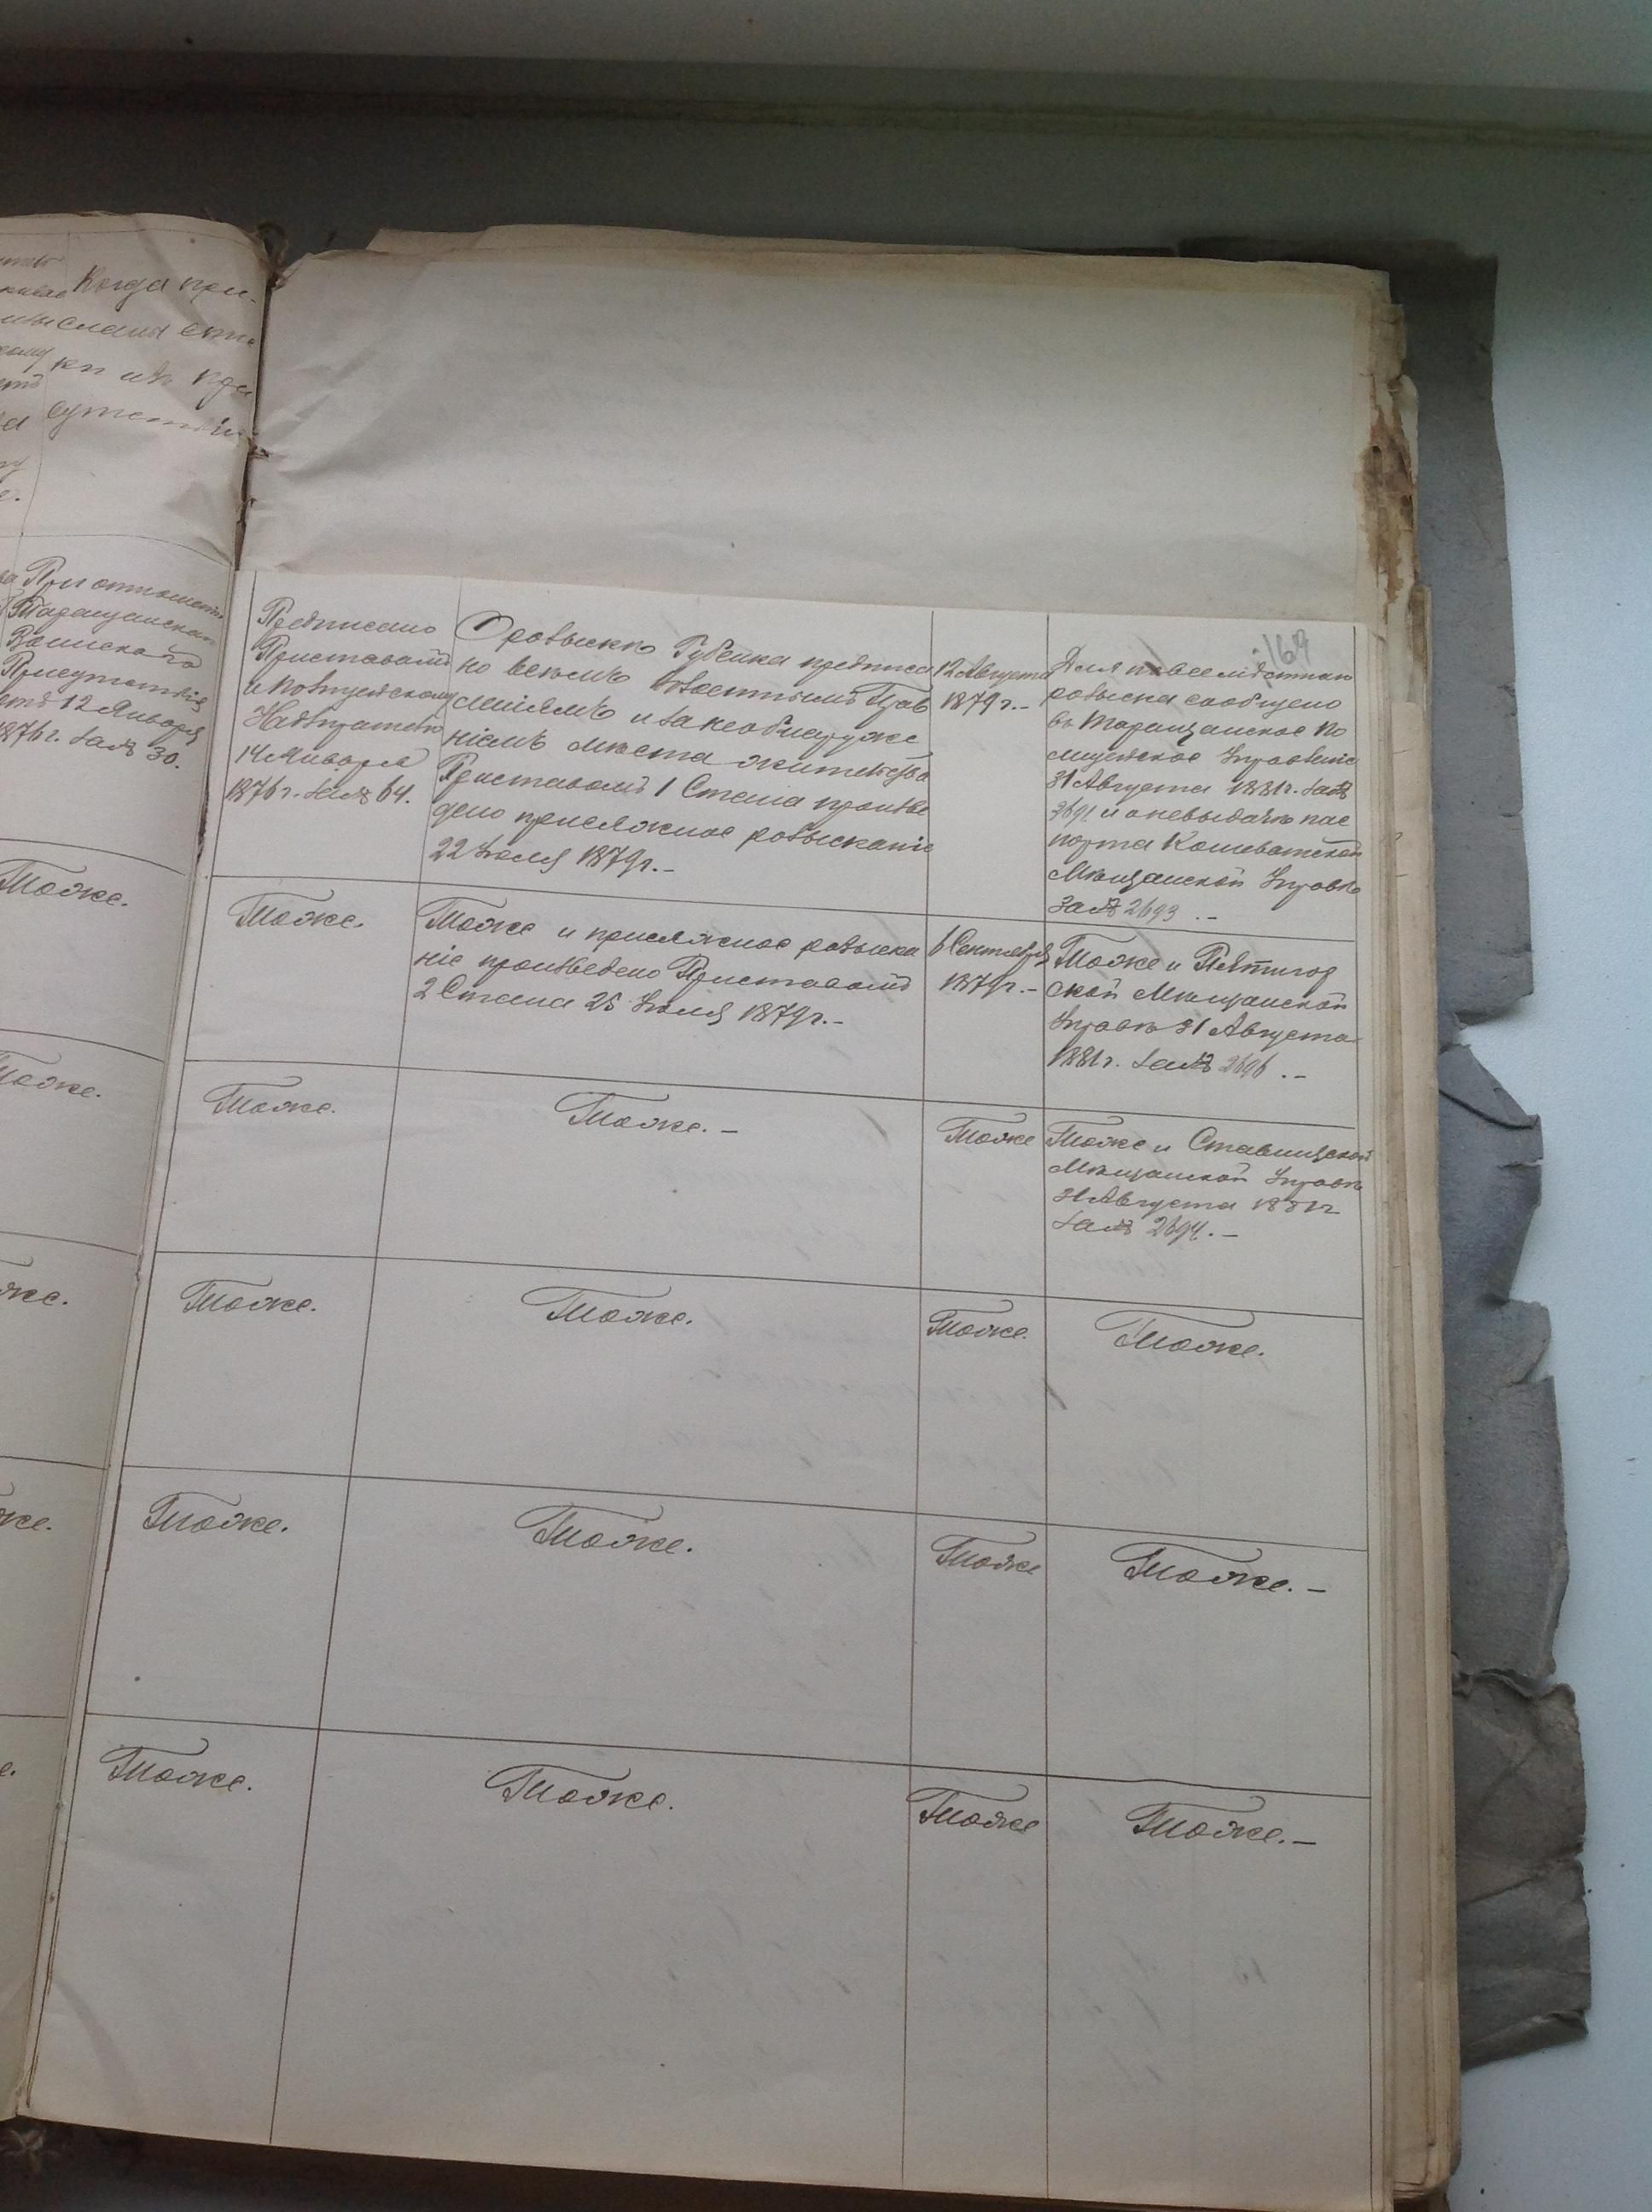 Когда при-
сланы спи-
ки изъ При
сутствія
При отношеніи
Таращанскаго
Воинскаго
Присутствія
отъ 12 Января
1876 г. за № 30.
Тоже.
169
Предписано
Приставамъ
и Полицейскому
Надзирателю
14 Января
1876 г. за № 64.
О розыскѣ Губейка предписа
но всѣмъ Волостнымъ Прав
леніямъ и за необнаруже
ніемъ мѣста жительства
Приставомъ 1 Стана произве
дено присяжное розысканіе
22 Іюля 1879 г. –
12 Августа
1879 г. –
Для повсемѣстнаго
розыска сообщено
въ Таращанское По
лицейское Управленіе
31 Августа 1881 г. за №
2691 и о невыдачѣ пас
порта Кошеватской
Мѣщанской Управѣ
за № 2693 . –
Тоже.
Тоже и присяжное розыска
ніе произведено Приставомъ
2 Стана 25 Іюля 1879 г. –
6 Сентября
1879 г. –
Тоже и Пятигор
ской Мѣщанской
Управѣ 31 Августа
1881 г. за № 2696 . –
Тоже.
Тоже. –
Тоже
Тоже и Ставищской
Мѣщанской Управѣ
31 Августа 1881 г
за № 2694 . –
Тоже.
Тоже.
Тоже.
Тоже.
Тоже.
Тоже.
Тоже
Тоже. –
Тоже.
Тоже.
Тоже
Тоже. –